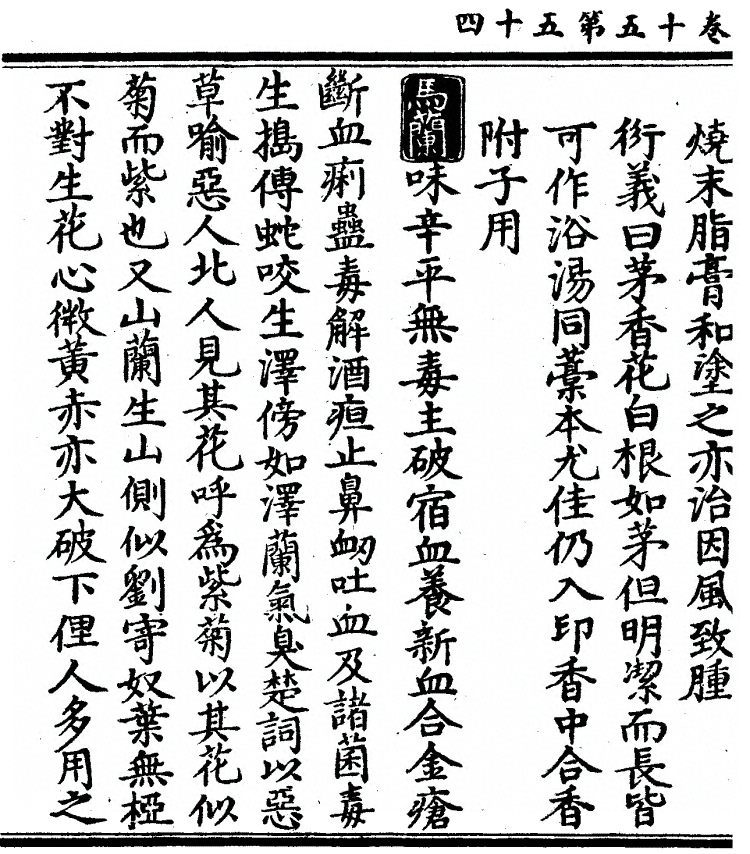 卷十五第五十四
燒末脂膏和塗之亦治因風致腫
衍義曰茅香花白根如茅但明潔而長皆
可作浴湯同藁本尤佳仍入印香中合香
附子用
馬蘭味辛平無毒主破宿血養新血合金瘡
斷血痢蠱毒解酒疸止鼻衂吐血及諸菌毒
生搗傅蛇咬生澤傍如澤蘭氣臭楚詞以惡
草喻惡人北人見其花呼爲紫菊以其花似
菊而紫也又山蘭生山側似劉寄奴葉無椏
不對生花心微黃赤亦大破下俚人多用之